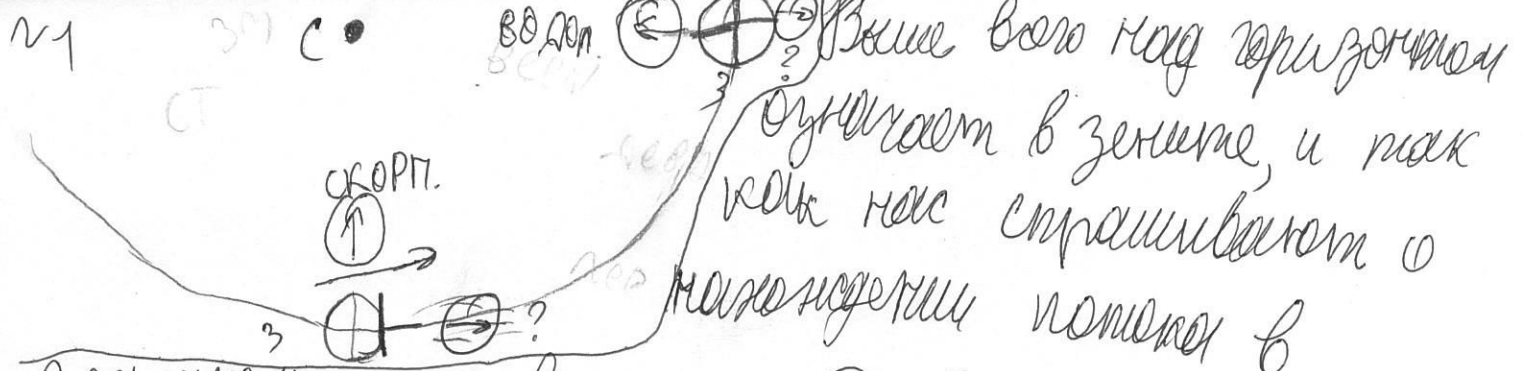 №1 С ВОДОЛ. ? Выше всего над горизонтом
З
означает в зените, и так
СКОРП.
как нас спрашивают о
нахождении потока в
З ?